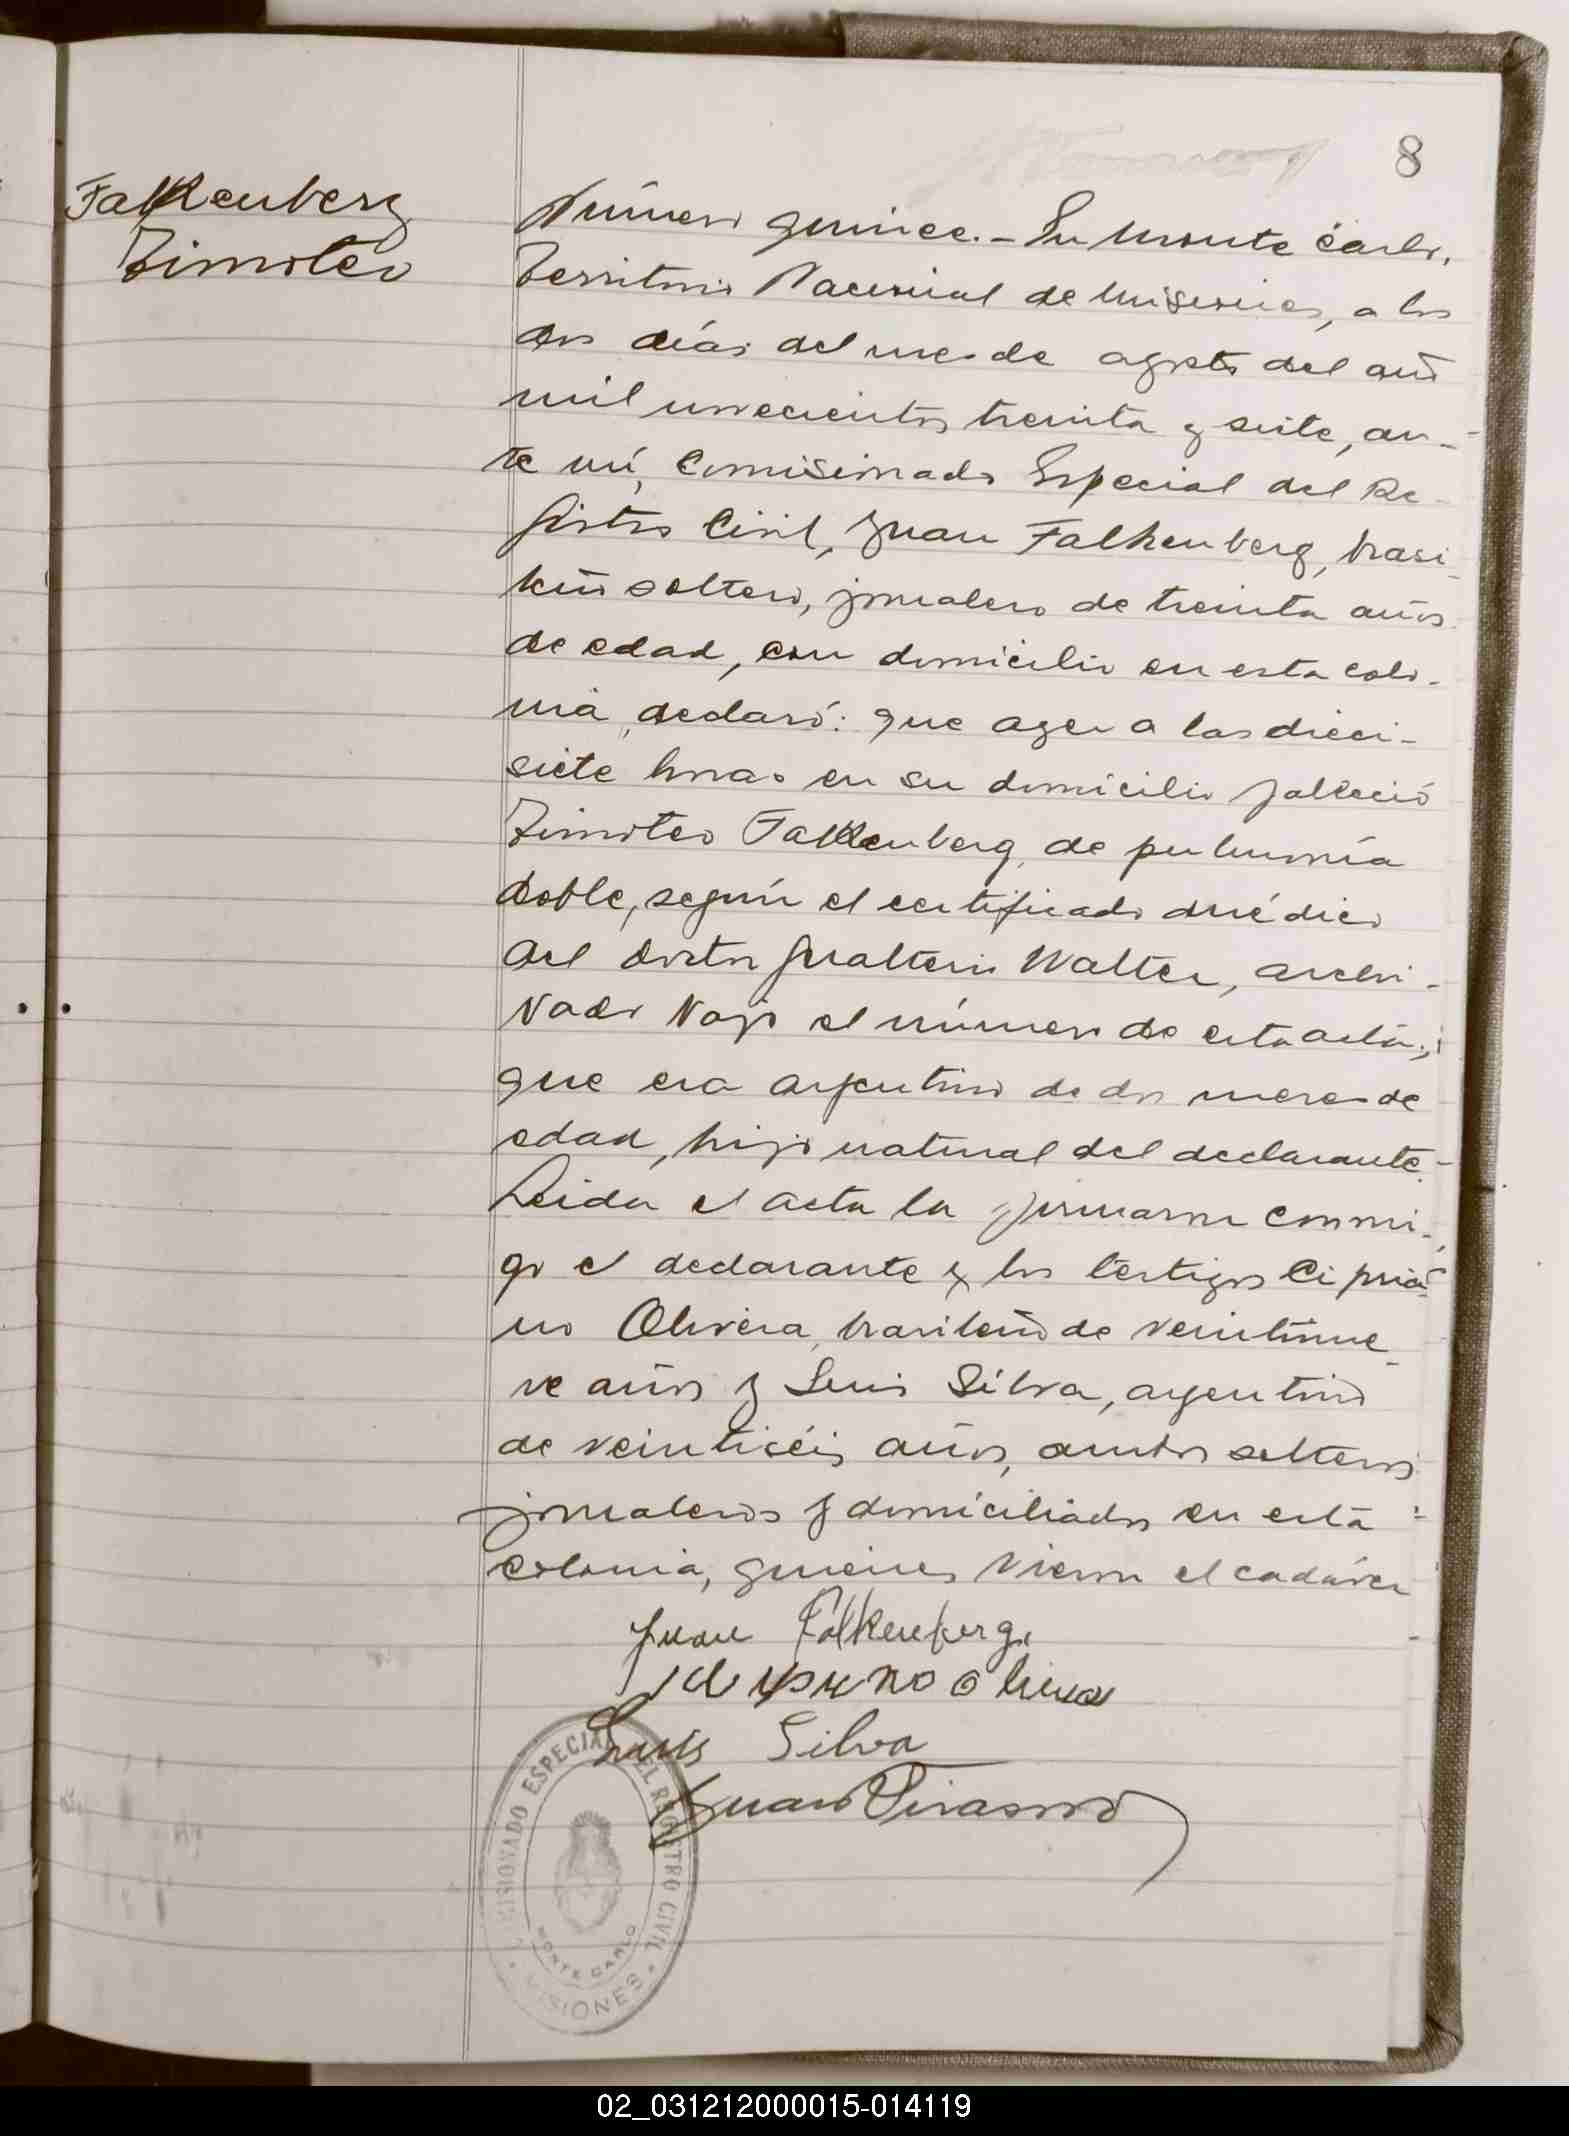 8
Falkenberg
Timoteo
Número quince.- En Monte Carlo,
Territorio Nacional de Misiones, a los
dos días del mes de agosto del año
mil novecientos treinta y siete, an-
te mí, Comisionado Especial del Re-
gistro Civil, Juan Falkenberg, brasi-
leño soltero, jornalero de treinta años
de edad, con domicilio en esta colo-
nia, declaró: que ayer a las dieci-
siete horas en su domicilio falleció
Timoteo Falkenberg, de pulmonía
doble, según el certificado médico
del doctor Gualterio Walter, archi-
vado bajo el número de esta acta;
que era argentino de dos meses de
edad, hijo natural del declarante.-
Leida el acta la firmaron conmi-
go el declarante y los testigos Cipria-
no Olivera, brasileño de veintinue-
ve años y Luis Silva, argentino
de veintiséis años, ambos solteros
jornaleros y domiciliados en esta
colonia, quienes vieron el cadáver
Juan Falkenberg.
Olivera
Luis Silva
Juan
COMISIONADO ESPECIAL DEL REGISTRO CIVIL
MONTE CARLO
MISIONES
02_031212000015-014119